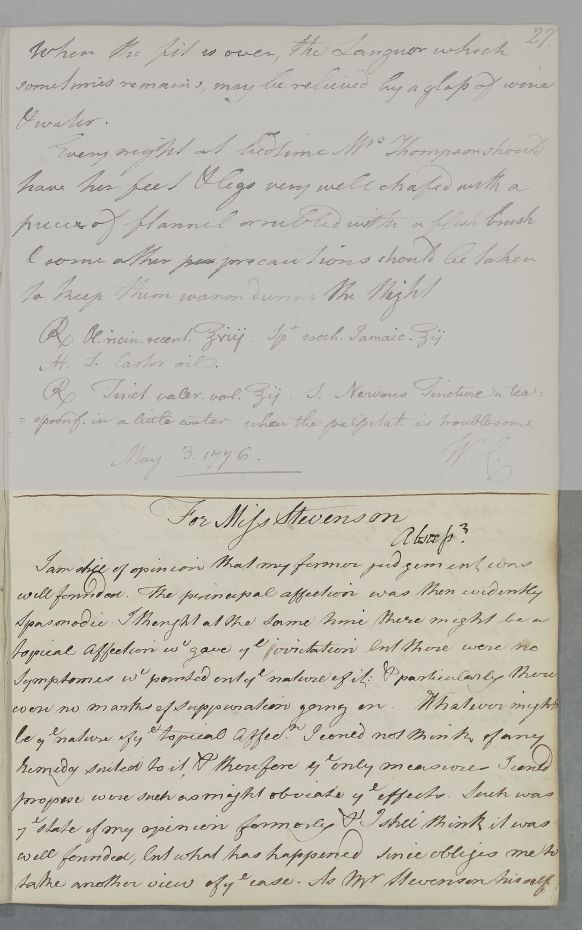 27.
When the fit is over, the Languor which
sometimes remains, may be relieved by a glass of wine
& water.
Every night at bedtime Mrs Thompson should
have her feet & legs very well chafed with a
piece of flannel or rubbed with a flesh brush
& some other precautions should be taken
to keep them warm during the Night
℞ Ol. ricin. recent. ℥iij. Spt sacch. Jamaic. ℥ij.
S. Castor oil.
℞ Tinct. valer. vol. ℥ij. S. Nervous Tincture a tea=
=spoonf. in a little water, when the palpitat. is troublesome
May 3. 1776. W. C.
For Miss Stevenson
Abscess?
I am still of opinion that my former judgement was
well founded. The principal affection was then evidently
spasmodic. I thought at the same time there might be a
topical Affection wc gave ye irritation but there were no
Symptomes wc pointed out ye nature of it: & particularly there
were no marks of suppuration going on. Whatever might
be ye nature of ye topical Affecn. I could not think of any
Remedy suited to it, & therefore ye only measures I could
propose were such as might obviate ye effects. Such was
ye state of my opinion formerly & I still think it was
well founded, but what has happened since obliges me to
take another view of ye case. As Mr Stevenson himself